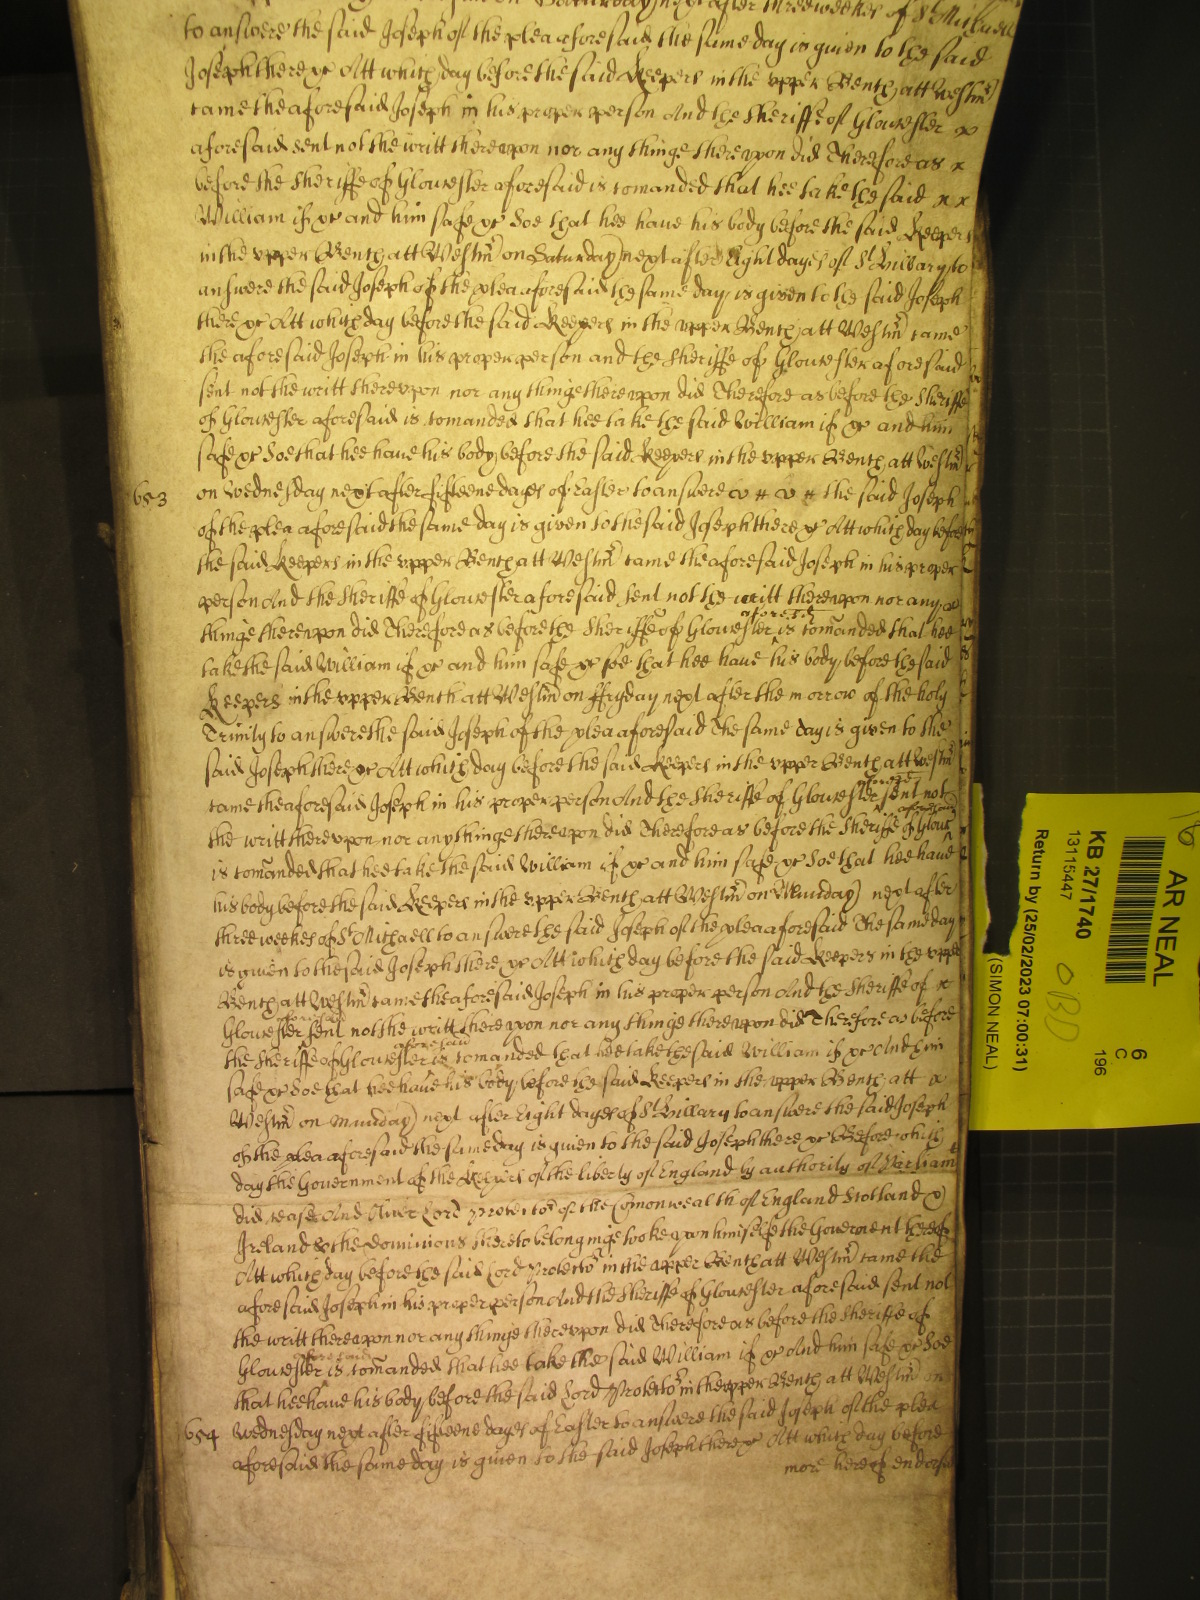 on Saturday next after three weekes of St Michaell
to answere the said Joseph of the plea aforesaid the same day is given to the said
Joseph there &c Att which day before the said Keepers in the vpper Bench att Westmr
came the aforesaid Joseph in his proper person And the Sheriffe of Gloucester x
aforesaid sent not the writt therevpon nor any thinge therevpon did Therefore as x
before the Sheriffe of Gloucester aforesaid is comanded that hee take the said x x
William if &c and him safe &c Soe that hee have his body before the said Keepers
in the vpper Bench att Westmr on Saturday next after Eight dayes of St Hillary to
answere the said Joseph of the plea aforesaid the same day is given to the said Joseph
there &c Att which day before the said Keepers in the vpper Bench att Westmr came
the aforesaid Joseph in his proper person and the Sheriffe of Gloucester aforesaid
sent not the writt therevpon nor any thinge therevpon did Therefore as before the Sheriffe
of Gloucester aforesaid is comanded that hee take the said William if &c and him
safe &c Soe that hee have his body before the said Keepers in the vpper Bench att Westmr
1653 on Wednesday next after fifteene dayes of Easter to answere the said Joseph
of the plea aforesaid the same day is given to the said Joseph there &c Att which day before
the said Keepers in the vpper Bench att Westmr came the aforesaid Joseph in his proper
person And the Sheriffe of Gloucester aforesaid sent not the writt therevpon nor any x
thinge therevpon did Therefore as before the Sheriffe of Gloucester aforesd is comanded that hee
take the said William if &c and him safe &c soe that hee have his body before the said
Keepers in the vpper Bench att Westmr on ffryday next after the morrow of the holy
Trinity to answere the said Joseph of the plea aforesaid The same day is given to the
said Joseph there &c Att which day before the said Keepers in the vpper Bench att Westmr
came the aforesaid Joseph in his proper person And the Sheriffe of Gloucester aforesd sent not
the writt therevpon nor any thinge therevpon did Therefore as before the Sheriffe of Glouc aforesaid
is comanded that hee take the said William if &c and him safe &c Soe that hee have
his body before the said Keepers in the vpper Bench att Westmr on Munday next after
three weekes of St Michaell to answere the said Joseph of the plea aforesaid The same day
is given to the said Joseph there &c Att which day before the said Keepers in the vpper
Bench att Westmr came the aforesaid Joseph in his proper person And the Sheriffe of x
Gloucester aforesaid sent not the writt therevpon nor any thinge therevpon did Therefore as before
the Sheriffe of Gloucester aforesaid is comanded that hee take the said William if &c And him
safe &c Soe that hee have his body before the said Keepers in the vpper Bench att x
Westmr on Munday next after Eight dayes of St Hillary to answere the said Joseph
of the plea aforesaid the same day is given to the said Joseph there &c Before which
day the Government of the Keepers of the liberty of England by authority of Parliamt
did cease And Oliver Lord Protector of the Comonwealth of England Scotland &
Ireland & the Dominions thereto belonginge tooke vpon himselfe the Government thereof
Att which day before the said Lord Protector in the vpper Bench att Westmr came the
aforesaid Joseph in his proper person And the Sheriffe of Gloucester aforesaid sent not
the writt therevpon nor any thinge therevpon did Therefore as before the Sheriffe of
Gloucester aforesaid is comanded that hee take the said William if &c And him safe &c Soe
that hee have his body before the said Lord Protector in the vpper Bench att Westmr on
1654 Wednesday next after fifteene dayes of Easter to answere the said Joseph of the plea
aforesaid the same day is given to the said Joseph there &c Att which day before
more hereof endorsd
AR NEAL
KB 27/1740
13115447
Return by (25/02/2023 07:00:31)
(SIMON NEAL)
6
C
196
OBD